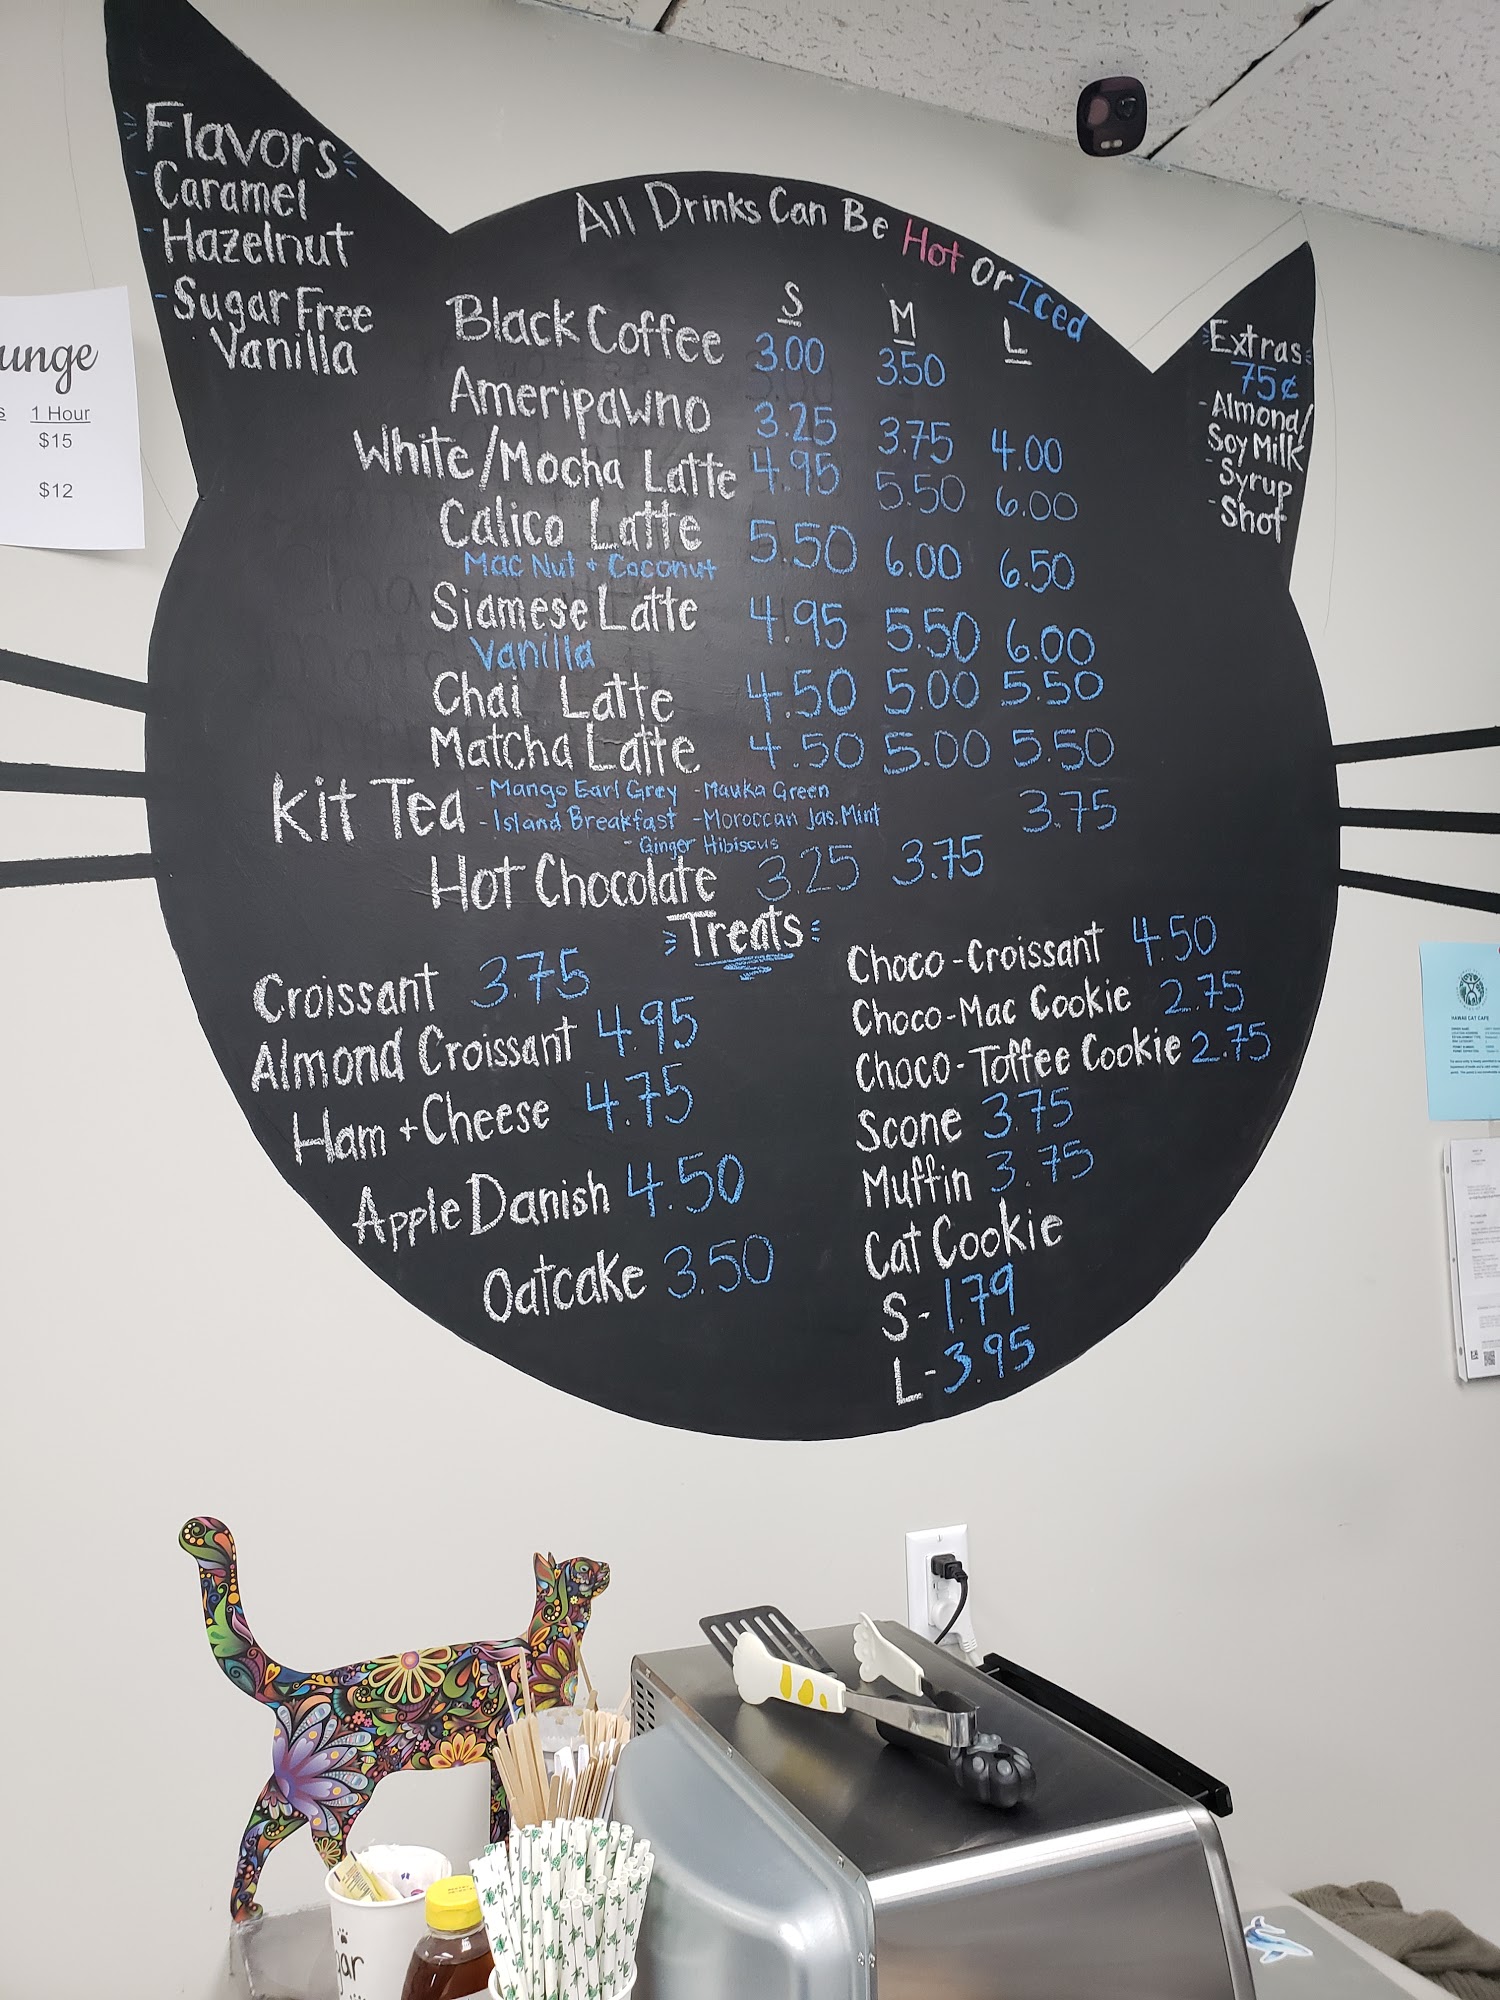 Flavors
- Caramel
- Hazelnut
- Sugar Free
Vanilla
All Drinks Can Be Hot or Iced
S M L
Black Coffee 3.00 3.50
Ameripawno 3.25 3.75 4.00
White/Mocha Latte 4.95 5.50 6.00
Calico Latte 5.50 6.00 6.50
Mac Nut + Coconut
Siamese Latte 4.95 5.50 6.00
Vanilla
Chai Latte 4.50 5.00 5.50
Matcha Latte 4.50 5.00 5.50
Kit Tea 3.75
- Mango Earl Grey - Mauka Green
- Island Breakfast - Moroccan Jas. Mint
- Ginger Hibiscus
Hot Chocolate 3.25 3.75
Extras
75¢
- Almond/
Soy Milk
- Syrup
- Shot
Treats
Croissant 3.75
Almond Croissant 4.95
Ham + Cheese 4.75
Apple Danish 4.50
Oatcake 3.50
Choco-Croissant 4.50
Choco-Mac Cookie 2.75
Choco-Toffee Cookie 2.75
Scone 3.75
Muffin 3.75
Cat Cookie
S - 1.79
L - 3.95
unge
s 1 Hour
$15
$12
HAWAII CAT CAFE
gar